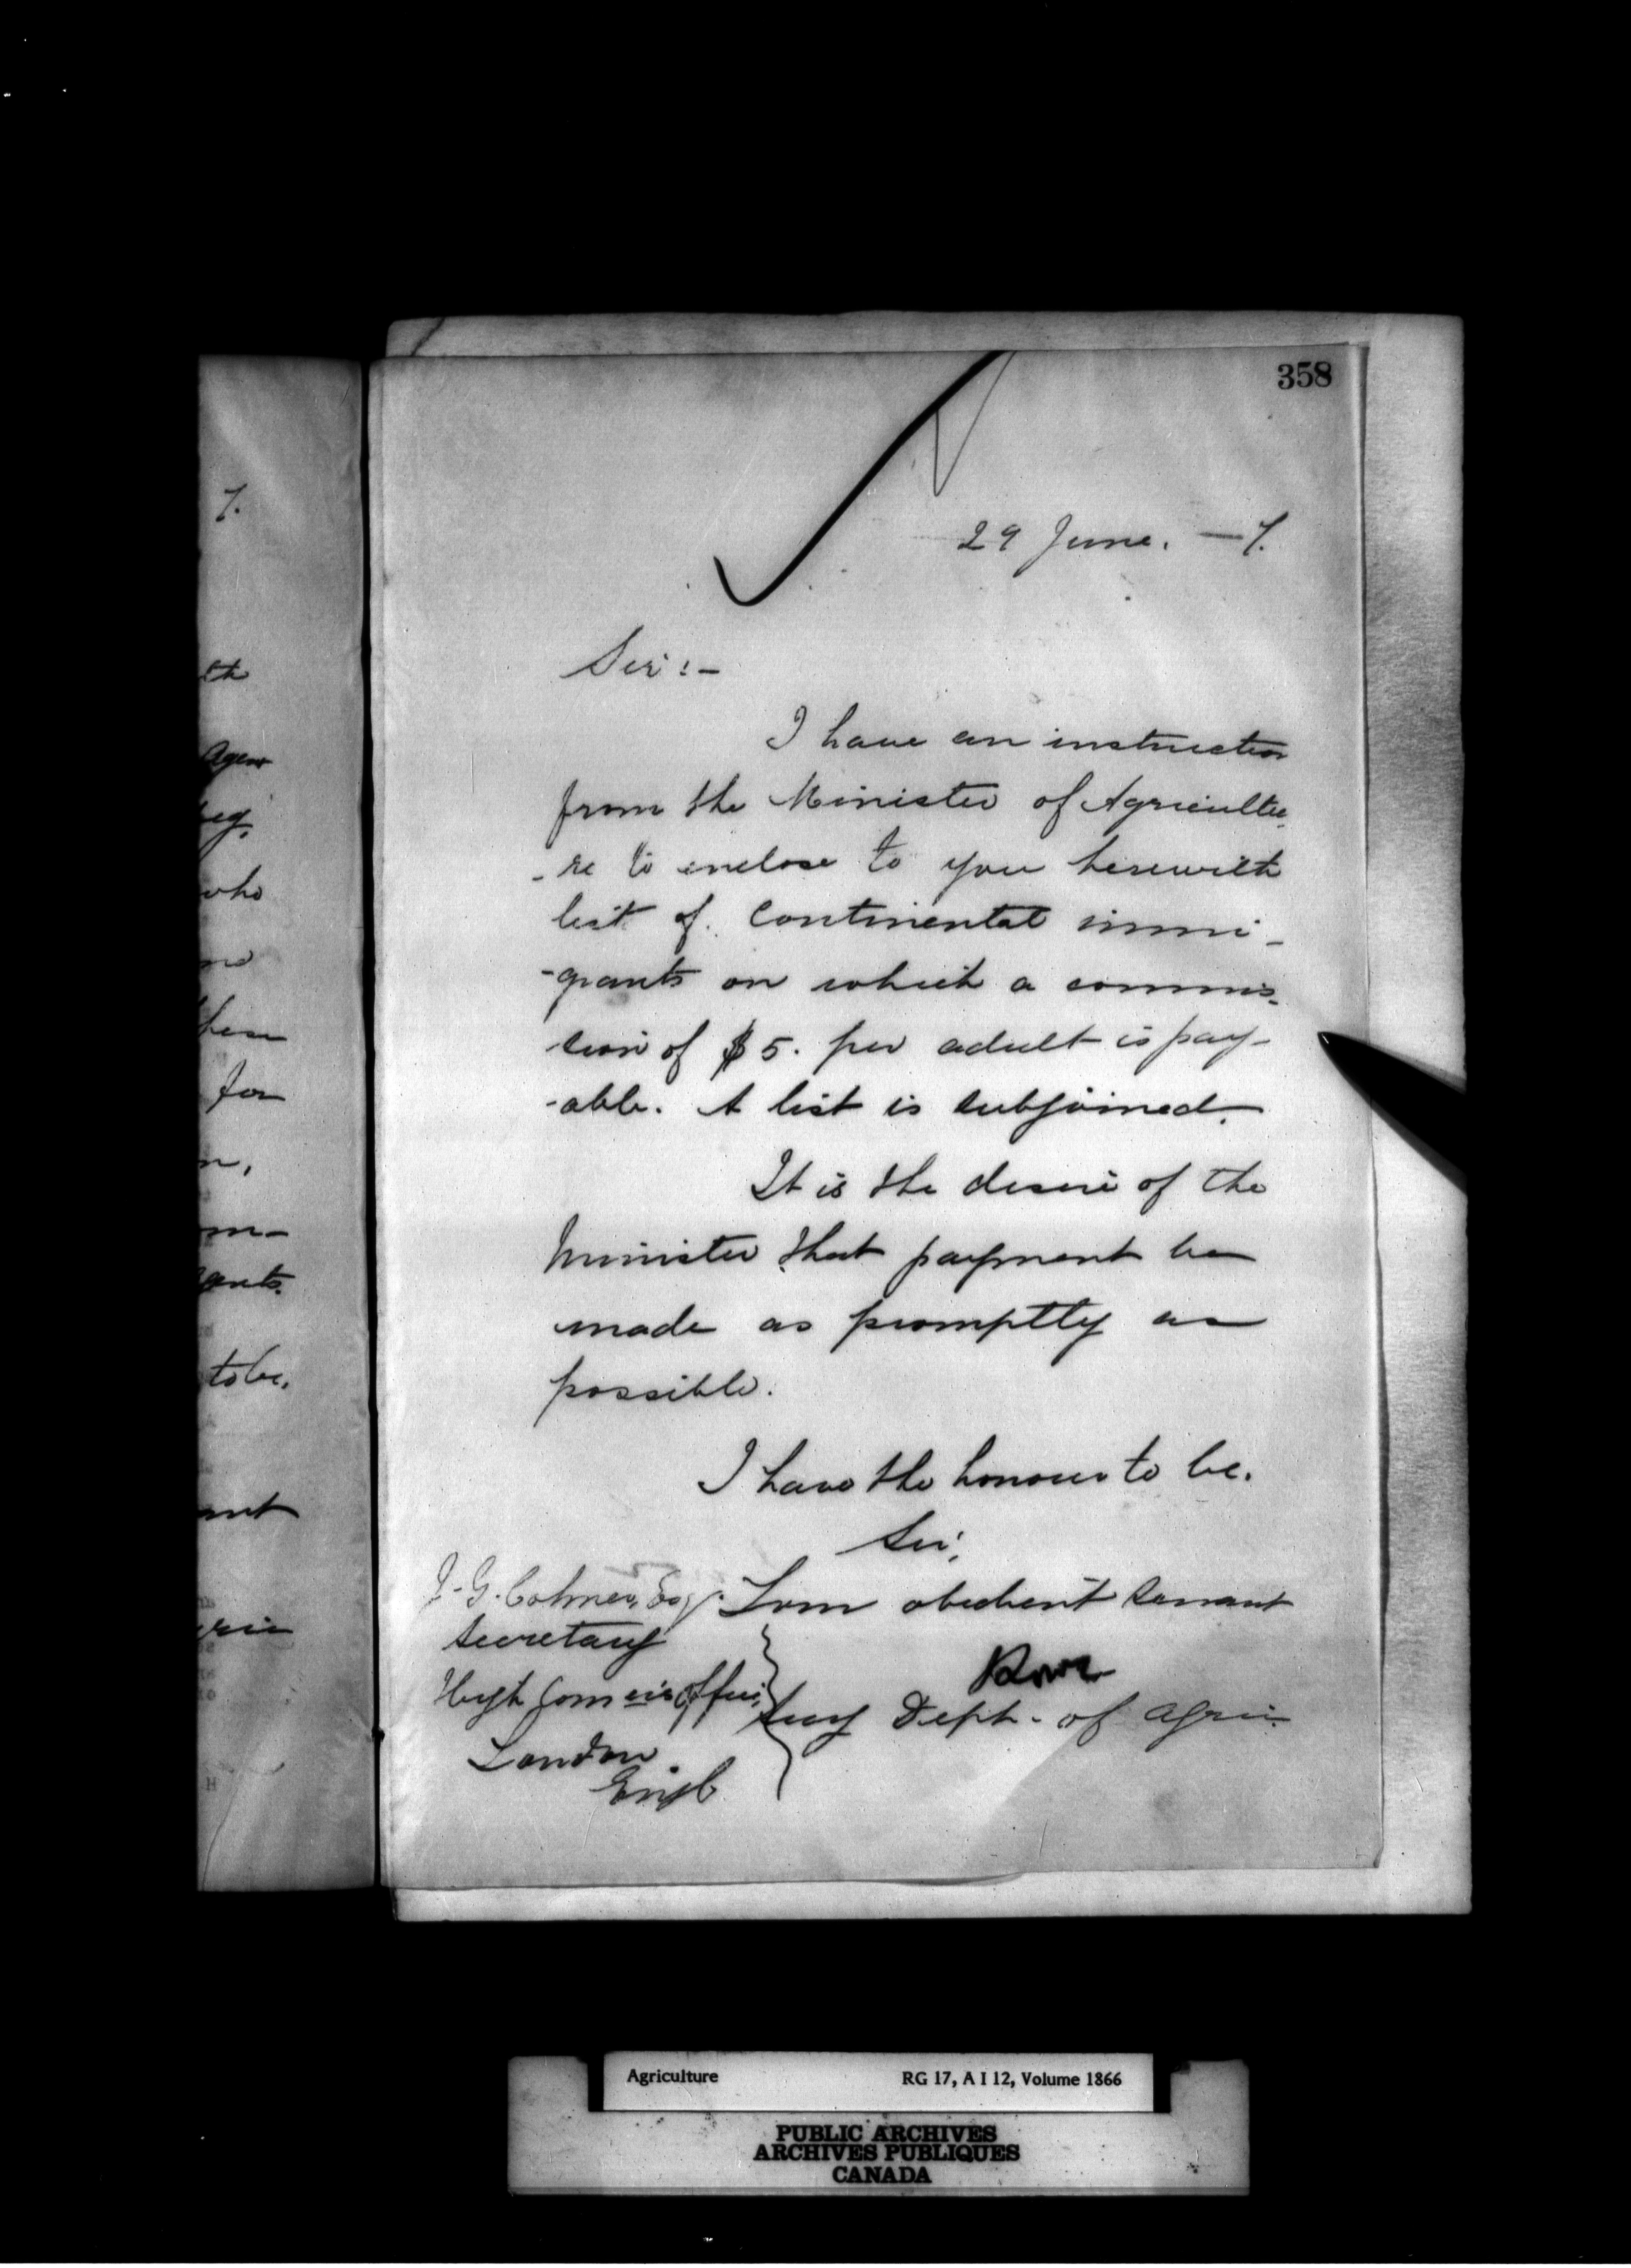 358
29 June. — 7.
Sir:-
I have an instruction
from the Minister of Agricultu
-re to enclose to you herewith
list of Continental immi-
-grants on which a commis-
sion of $5. per adult is pay-
-able. A list is subjoined.
It is the desire of the
Minister that payment be
made as promptly as
possible.
I have the honour to be.
Sir,
J. G. Colmer, Esq. Your obedient servant
Secretary
High Com Office
Secy Dept. of Agric.
London
Engl
7.
th
Agent
eg.
who
no
these
for
n,
m-
gents.
to be,
ant
gric
Agriculture
RG 17, A I 12, Volume 1866
PUBLIC ARCHIVES
ARCHIVES PUBLIQUES
CANADA